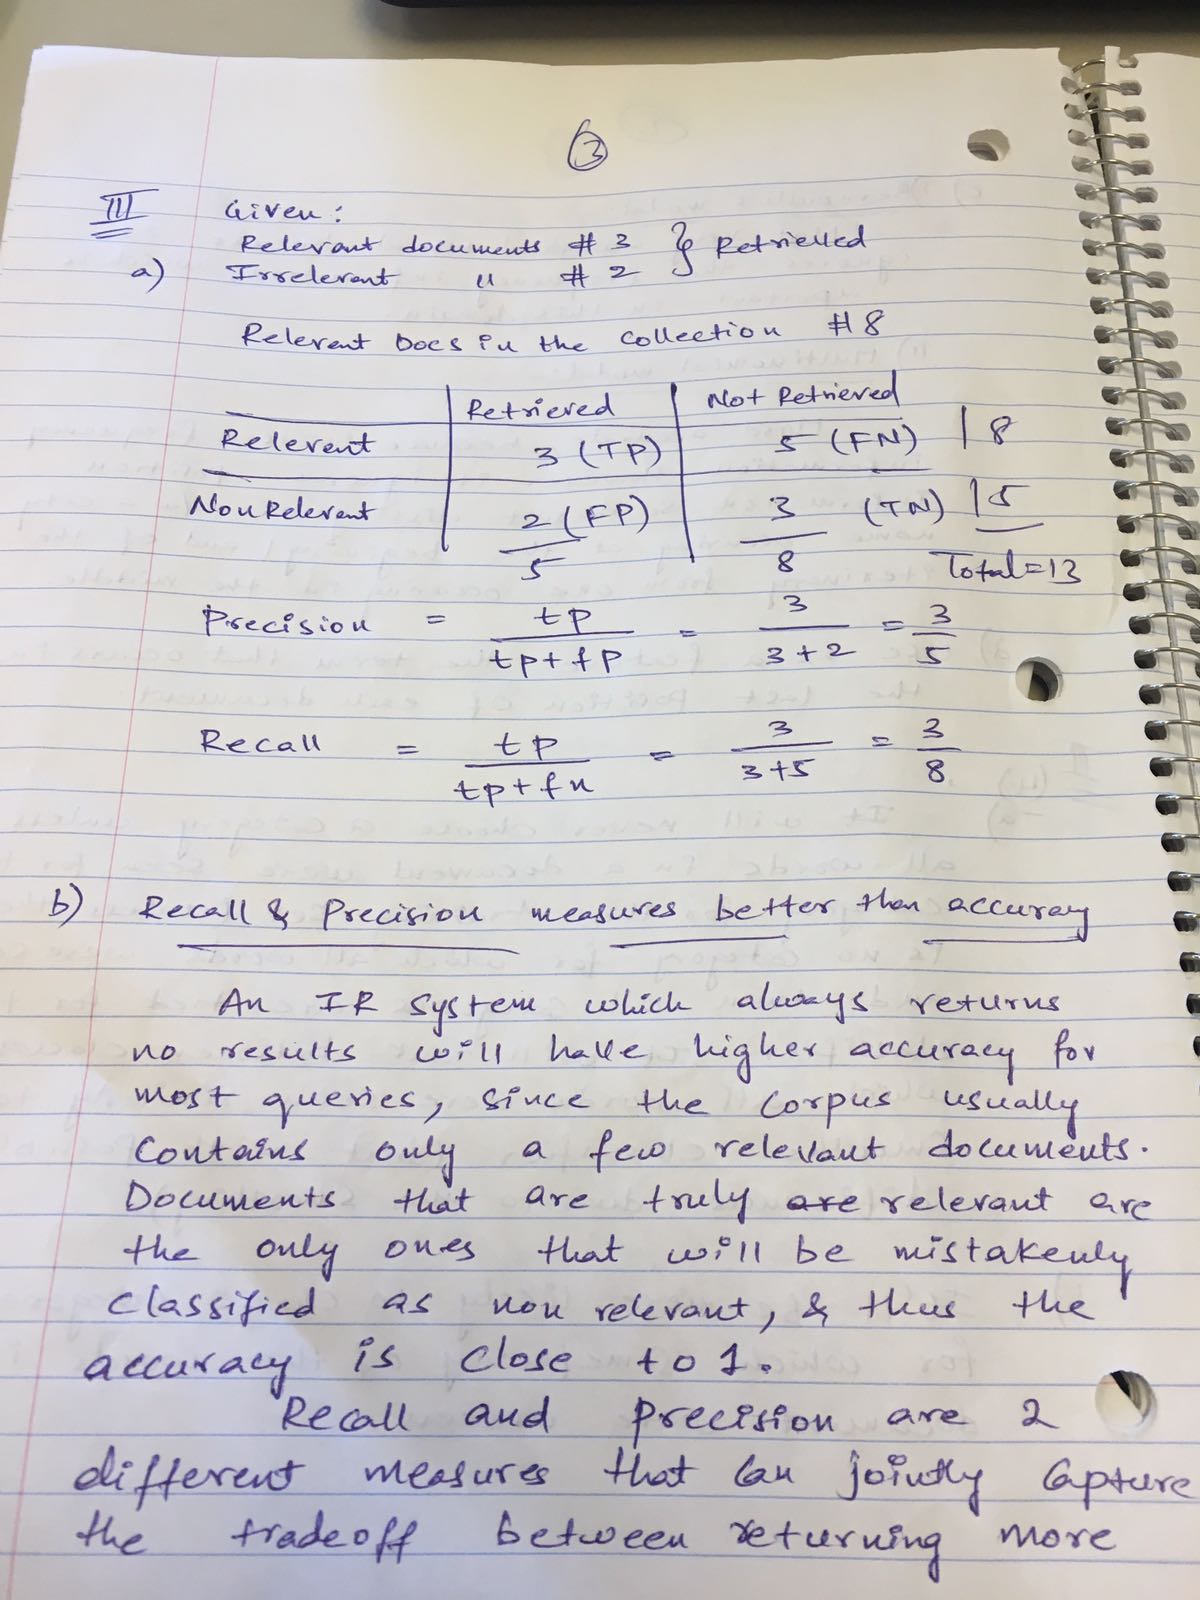 3
III Given:
Relevant documents # 3 } Retrieved
a) Irrelevant " # 2
Relevant Docs in the collection #8
Retrieved Not Retrieved
Relevent 3 (TP) 5 (FN) | 8
Non Relevant 2 (FP) 3 (TN) | 5
5 8 Total=13
Precision = tp / tp+fp = 3 / 3+2 = 3/5
Recall = tp / tp+fn = 3 / 3+5 = 3/8
b) Recall & Precision measures better than accuracy
An IR system which always returns
no results will have higher accuracy for
most queries, since the corpus usually
contains only a few relevant documents.
Documents that are truly are relevant are
the only ones that will be mistakenly
classified as non relevant, & thus the
accuracy is close to 1.
Recall and precision are 2
different measures that can jointly capture
the tradeoff between returning more